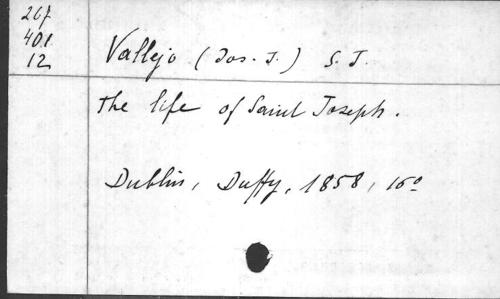 267
401
12
Vallejo (Jos. J.) S. J.
The life of Saint Joseph.
Dublin, Duffy, 1858, 16º